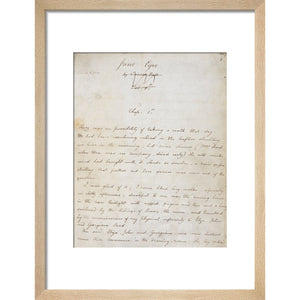 Jane Eyre
by Currer Bell
Vol. 1st
Chap. 1st
There was no possibility of taking a walk that day.
We had been wandering indeed in the leafless shrubbery
an hour in the morning, but since dinner (Mrs Reed
when there was no company, dined early) the cold winter
wind had brought with it clouds so sombre, a rain so pene-
trating that further out-door exercise was now out of the
question.
I was glad of it; I never liked long walks especially
on chilly afternoons; dreadful to me was the coming home
in the raw twilight with nipped fingers and toes and a heart
saddened by the chidings of Bessie, the nurse, and humbled
by the consciousness of my physical inferiority to Eliza, John
and Georgiana Reed.
The said Eliza, John and Georgiana were now clustered
round their mamma in the drawing-room: she lay reclined